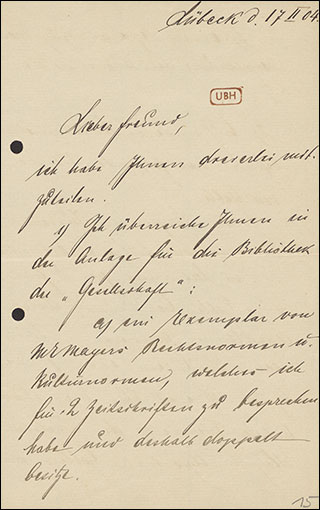 Lübeck d. 17 II 04.
UBH
Lieber Freund,
ich habe Ihnen dreierlei mit-
zuteilen.
1) Ich überreiche Ihnen in
der Anlage für die Bibliothek
der „Gesellschaft":
a) ein Exemplar von
M E Mayers Rechtsnormen u.
Kulturnormen, welches ich
für 2 Zeitschriften zu besprechen
habe und deshalb doppelt
besitze.
15